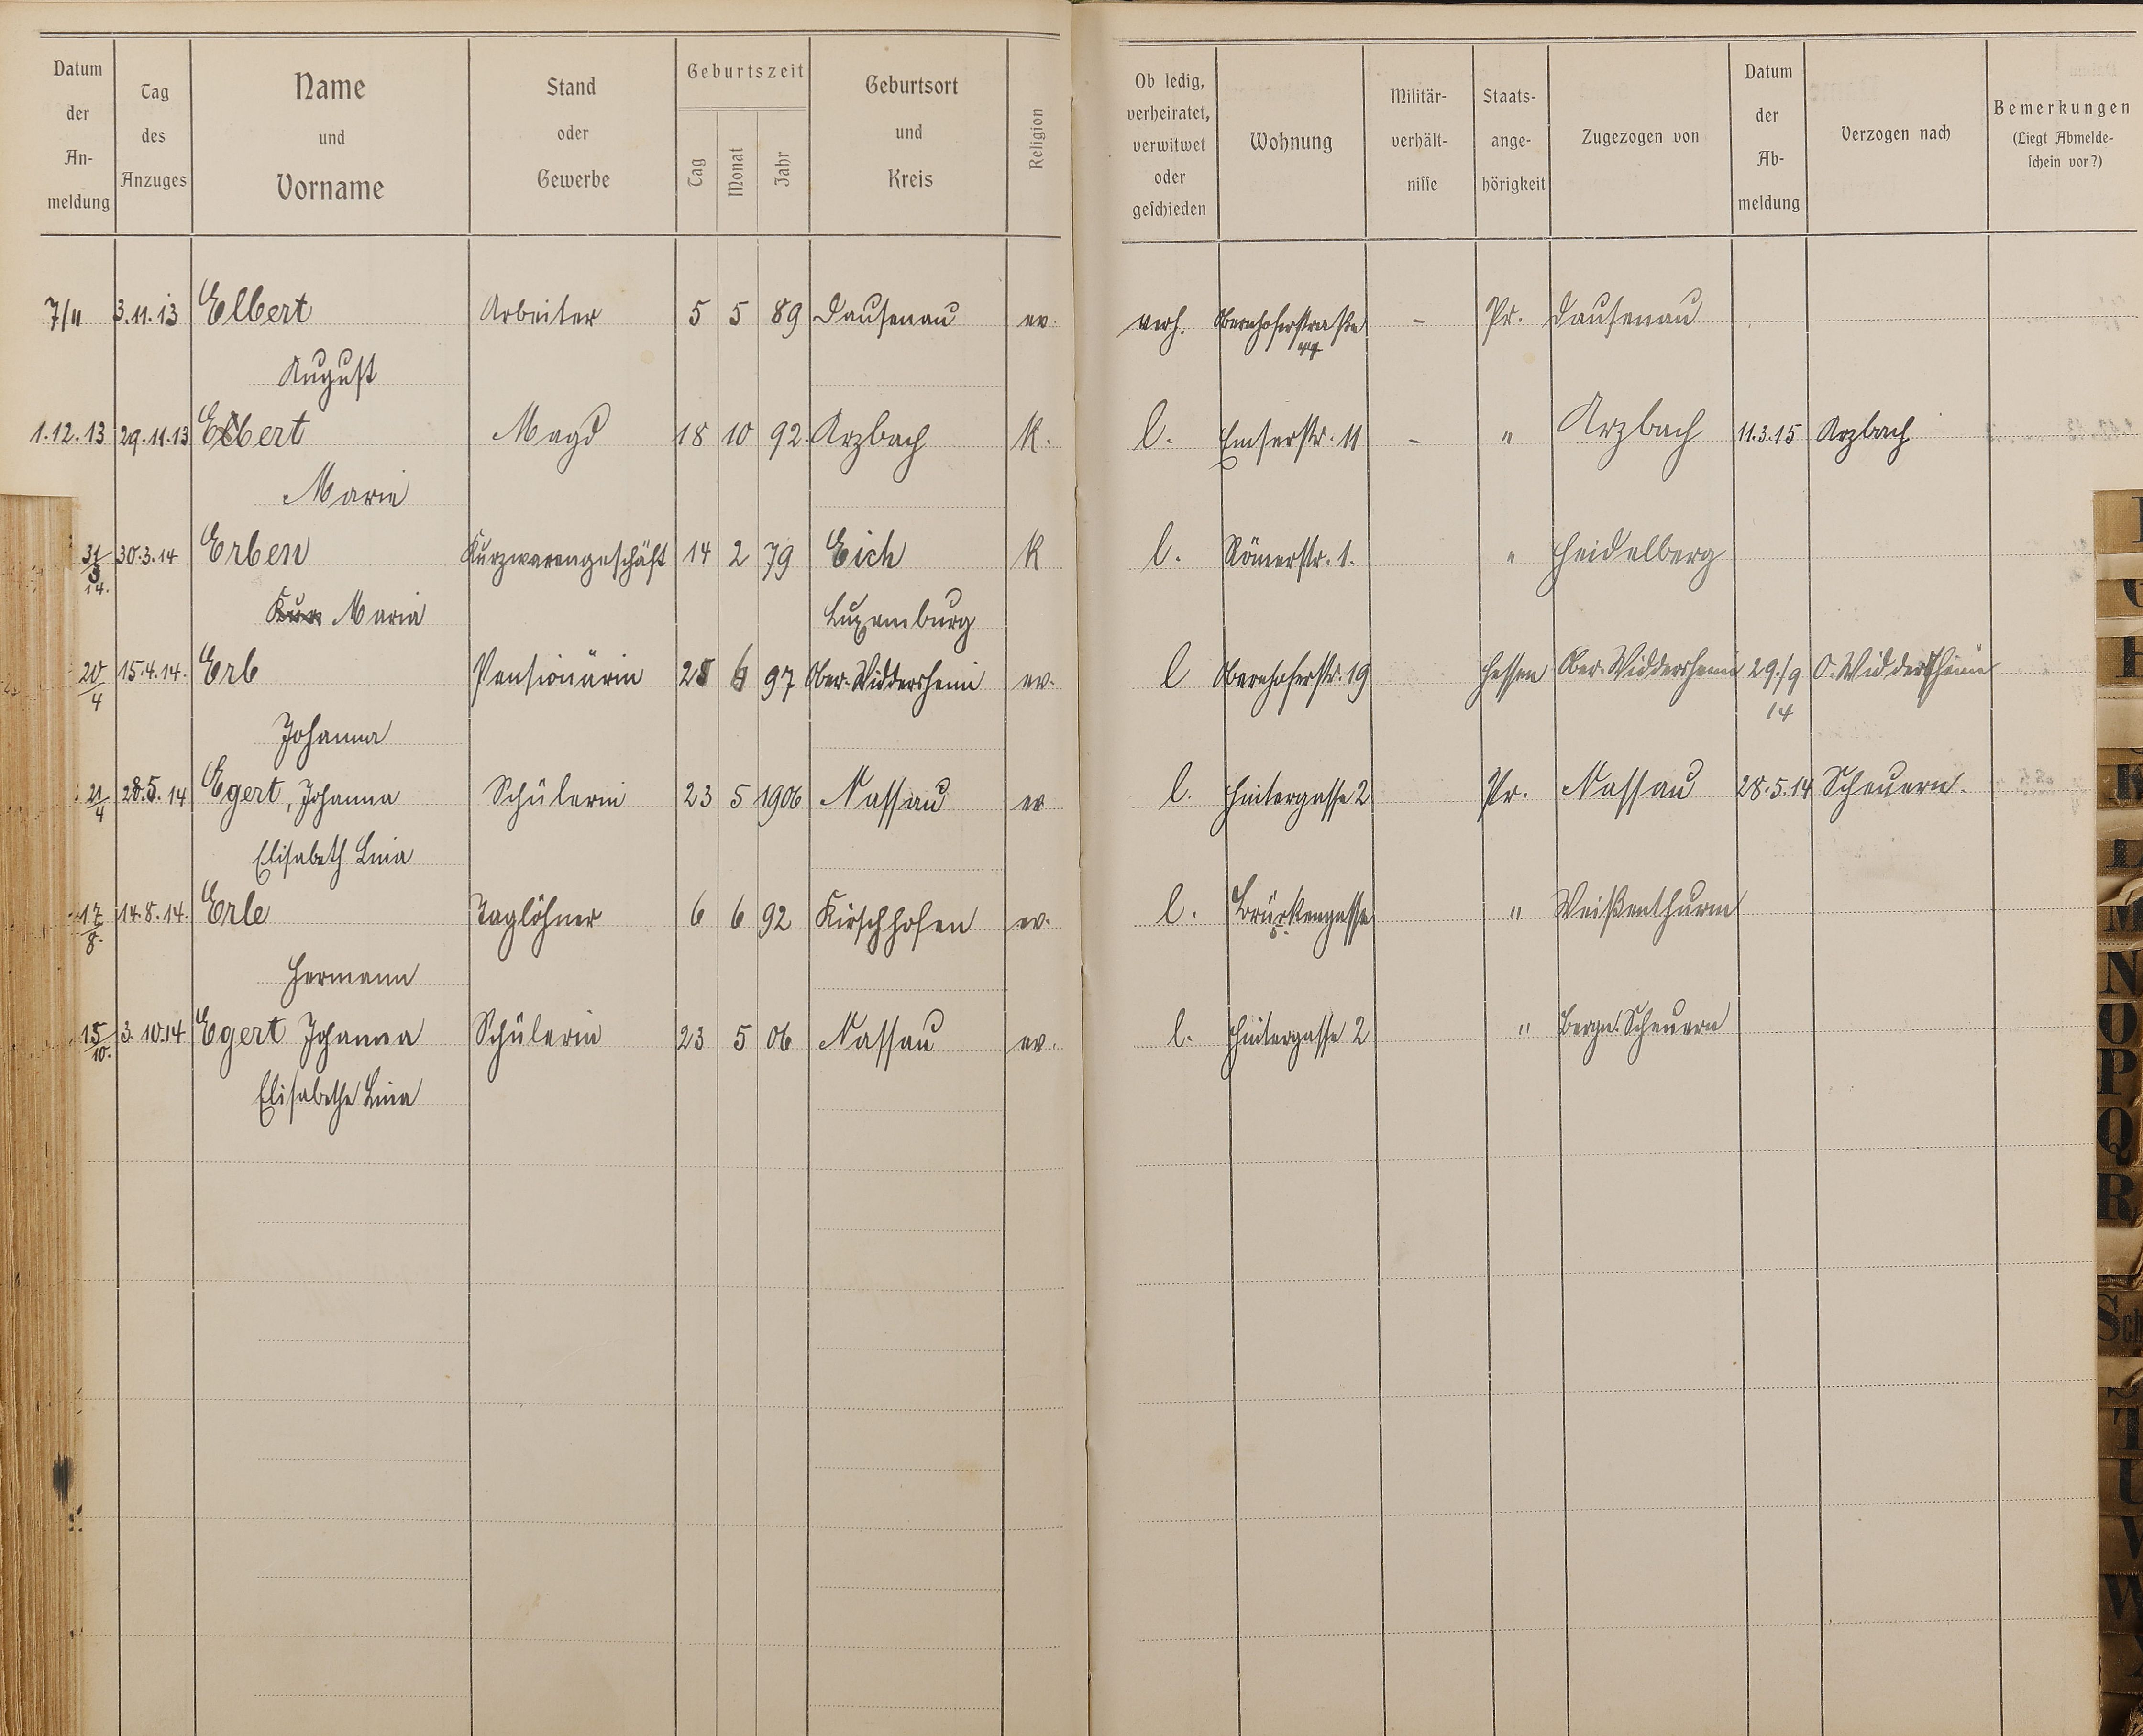 Datum der An-meldung | Tag des Anzuges | Name und Vorname | Stand oder Gewerbe | Geburtszeit Tag Monat Jahr | Geburtsort und Kreis | Religion | Ob ledig, verheiratet, verwitwet oder geschieden | Wohnung | Militär-verhält-nisse | Staats-ange-hörigkeit | Zugezogen von | Datum der Ab-meldung | Verzogen nach | Bemerkungen (Liegt Abmelde-schein vor?)
7/11 3.11.13 Elbert Arbeiter 5 5 89 Dausenau ev. verh. Obernhoferstraße - Pr. Dausenau
August
1.12.13 29.11.13 Elbert Magd 18 10 92 Arzbach K. l. Emserstr. 11 - " Arzbach 11.3.15 Arzbach
Marie
31/3 14. 30.3.14 Erben Kurzwarengeschäft 14 2 79 Eich K l. Römerstr. 1. " Heidelberg
Maria Luxemburg
20/4 15.4.14. Erb Pensionärin 28 6 97 Ober-Widdersheim ev. l Obernhoferstr. 19 Hessen Ober-Widdersheim 29./9 14 O. Widdersheim
Johanna
21/4 28.5.14 Egert, Johanna Schülerin 23 5 1906 Nassau ev l. Hintergasse 2 Pr. Nassau 28.5.14 Scheuern.
Elisabeth Lina
17/8. 14.8.14. Erle Taglöhner 6 6 92 Kirschhofen ev. l. Brückengasse 5. " Weißenthurm
Hermann
15/10. 3.10.14 Egert Johanna Schülerin 23 5 06 Nassau ev. l. Hintergasse 2 " Bergn. Scheuern
Elisabethe Lina
L
M
N
O
P
Q
R
Sch
T
U
W